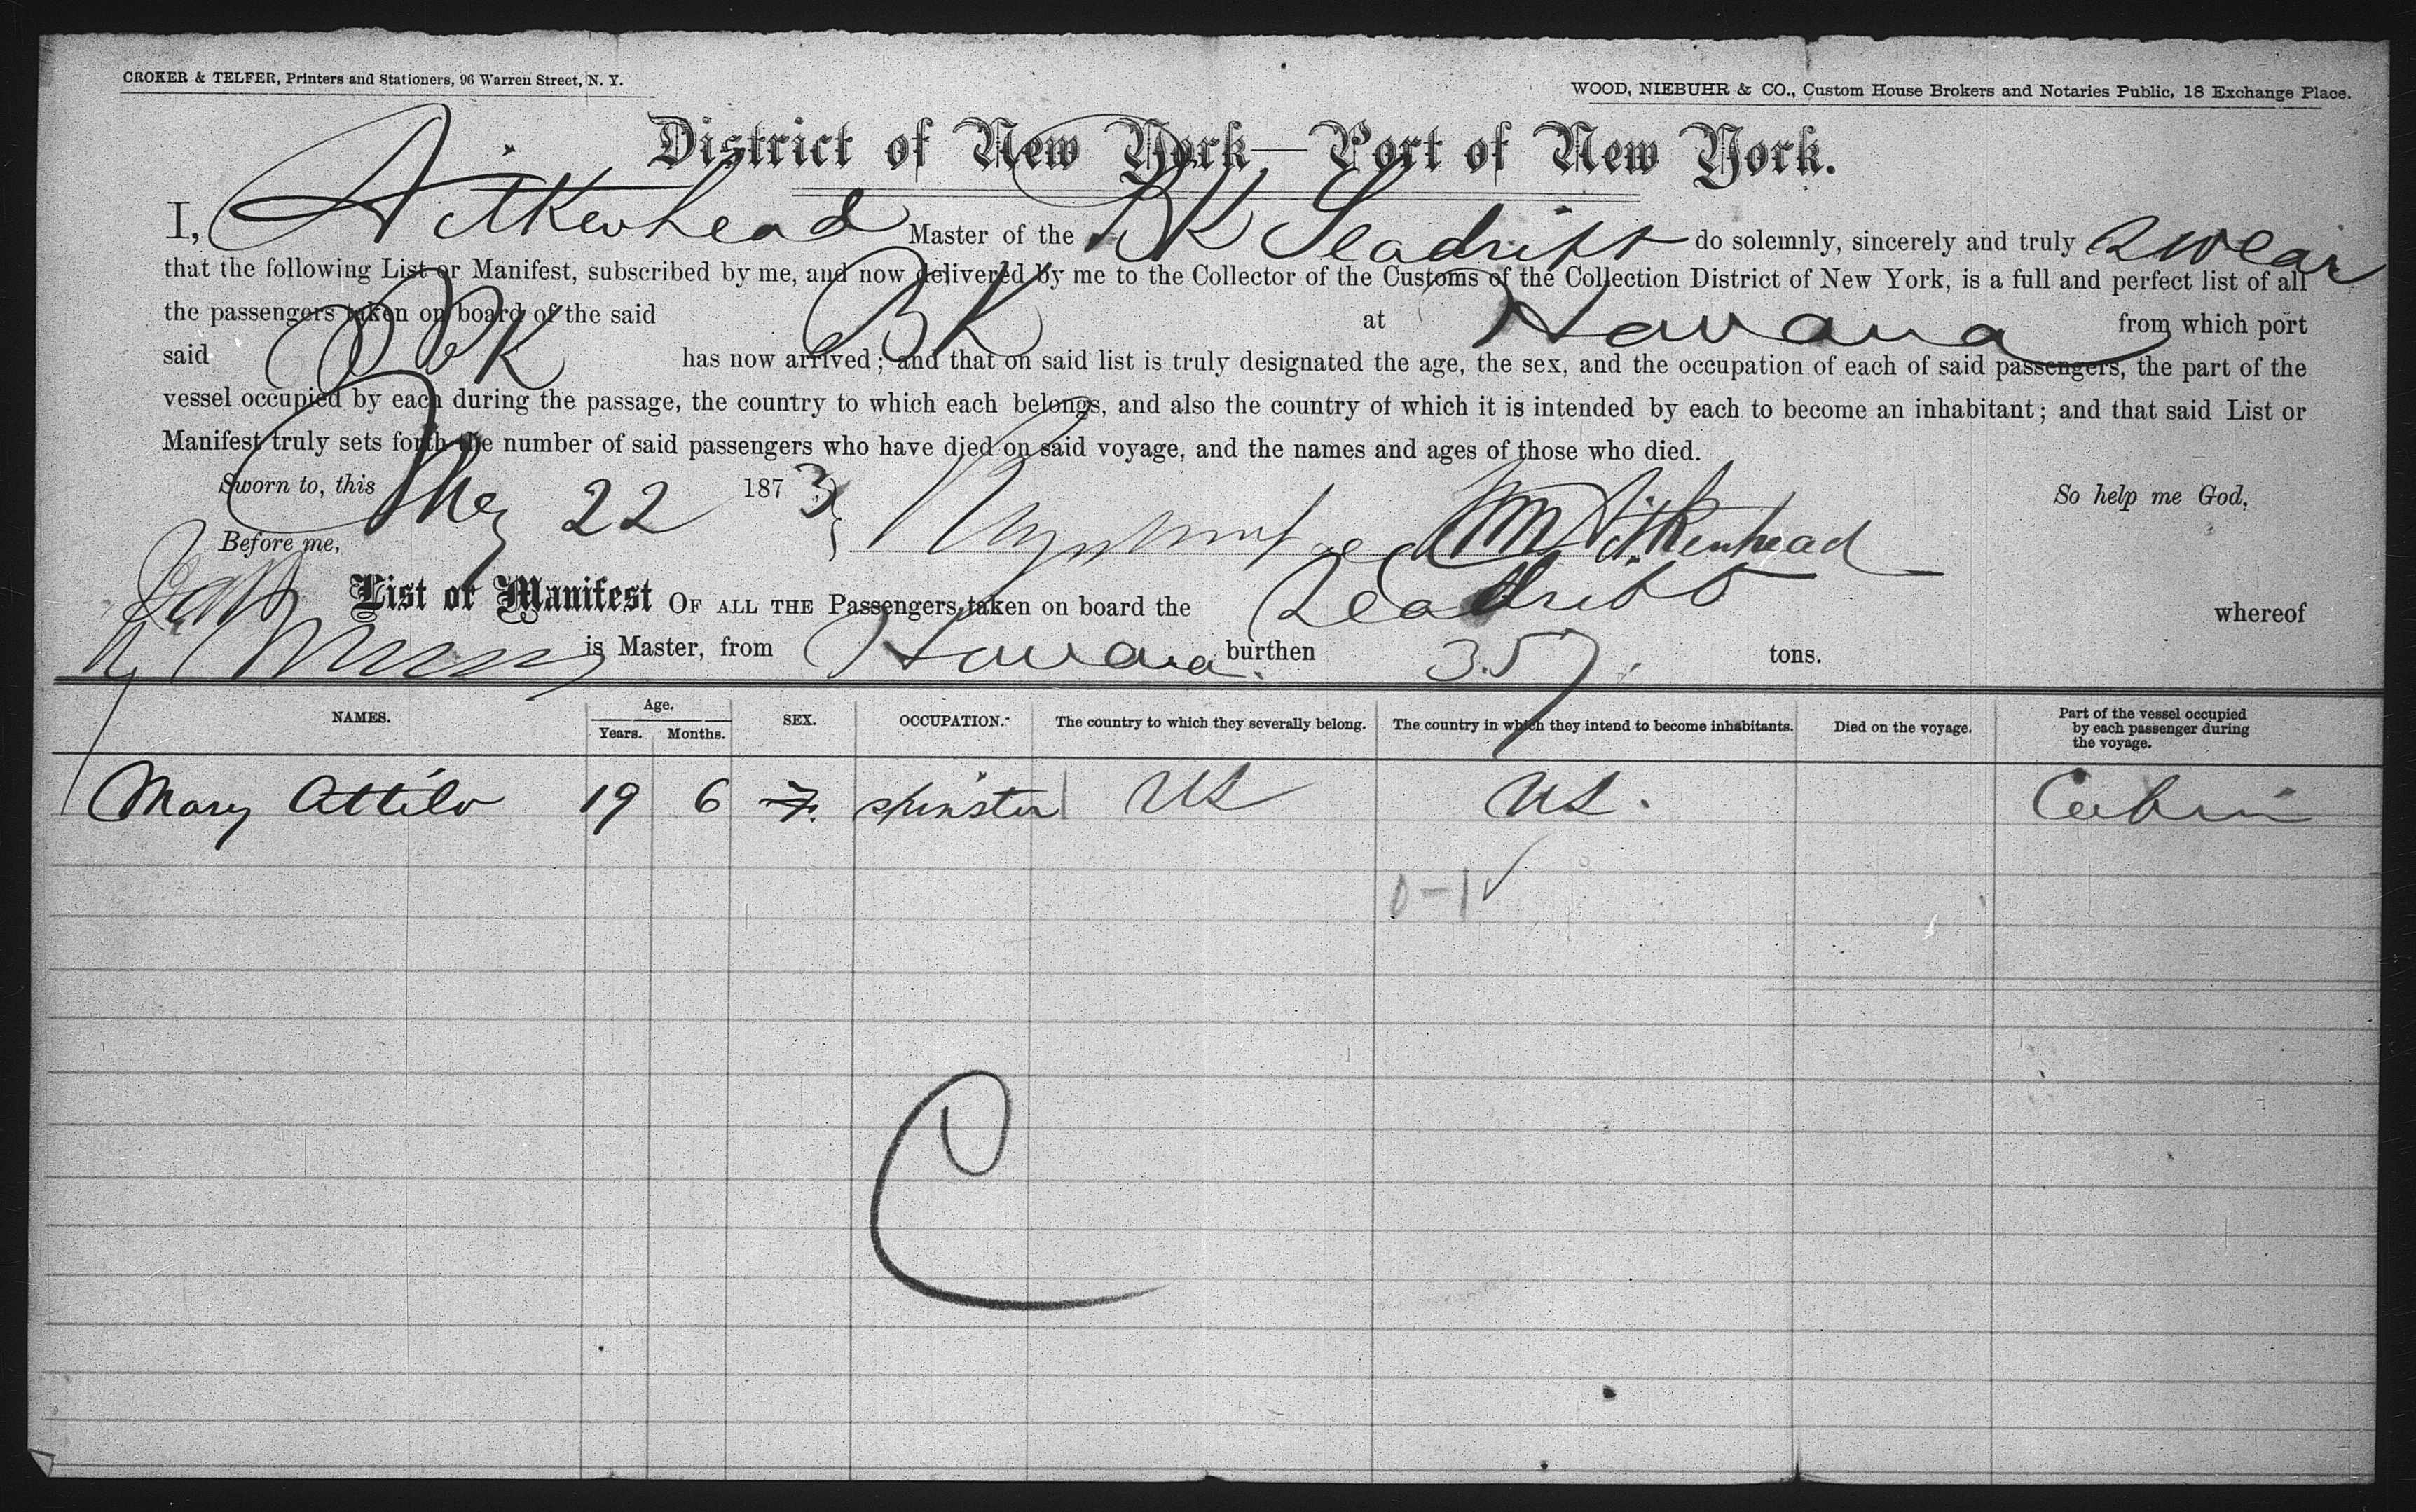 CROKER & TELFER, Printers and Stationers, 96 Warren Street, N. Y.
WOOD, NIEBUHR & CO., Custom House Brokers and Notaries Public, 18 Exchange Place.
District of New York—Port of New York.
I, Aitkenhead Master of the BK Seadrift do solemnly, sincerely and truly swear
that the following List or Manifest, subscribed by me, and now delivered by me to the Collector of the Customs of the Collection District of New York, is a full and perfect list of all
the passengers taken on board of the said BK at Havana from which port
said BK has now arrived; and that on said list is truly designated the age, the sex, and the occupation of each of said passengers, the part of the
vessel occupied by each during the passage, the country to which each belongs, and also the country of which it is intended by each to become an inhabitant; and that said List or
Manifest truly sets forth the number of said passengers who have died on said voyage, and the names and ages of those who died.
Sworn to, this May 22 1873 So help me God,
Before me, Wm Aitkenhead
List or Manifest OF ALL THE Passengers taken on board the Seadrift whereof
is Master, from Havana burthen 357 tons.
NAMES. Age. Years. Months. SEX. OCCUPATION. The country to which they severally belong. The country in which they intend to become inhabitants. Died on the voyage. Part of the vessel occupied by each passenger during the voyage.
Mary Attilo 19 6 F. spinster US US. Cabin
0-1 ✓
C